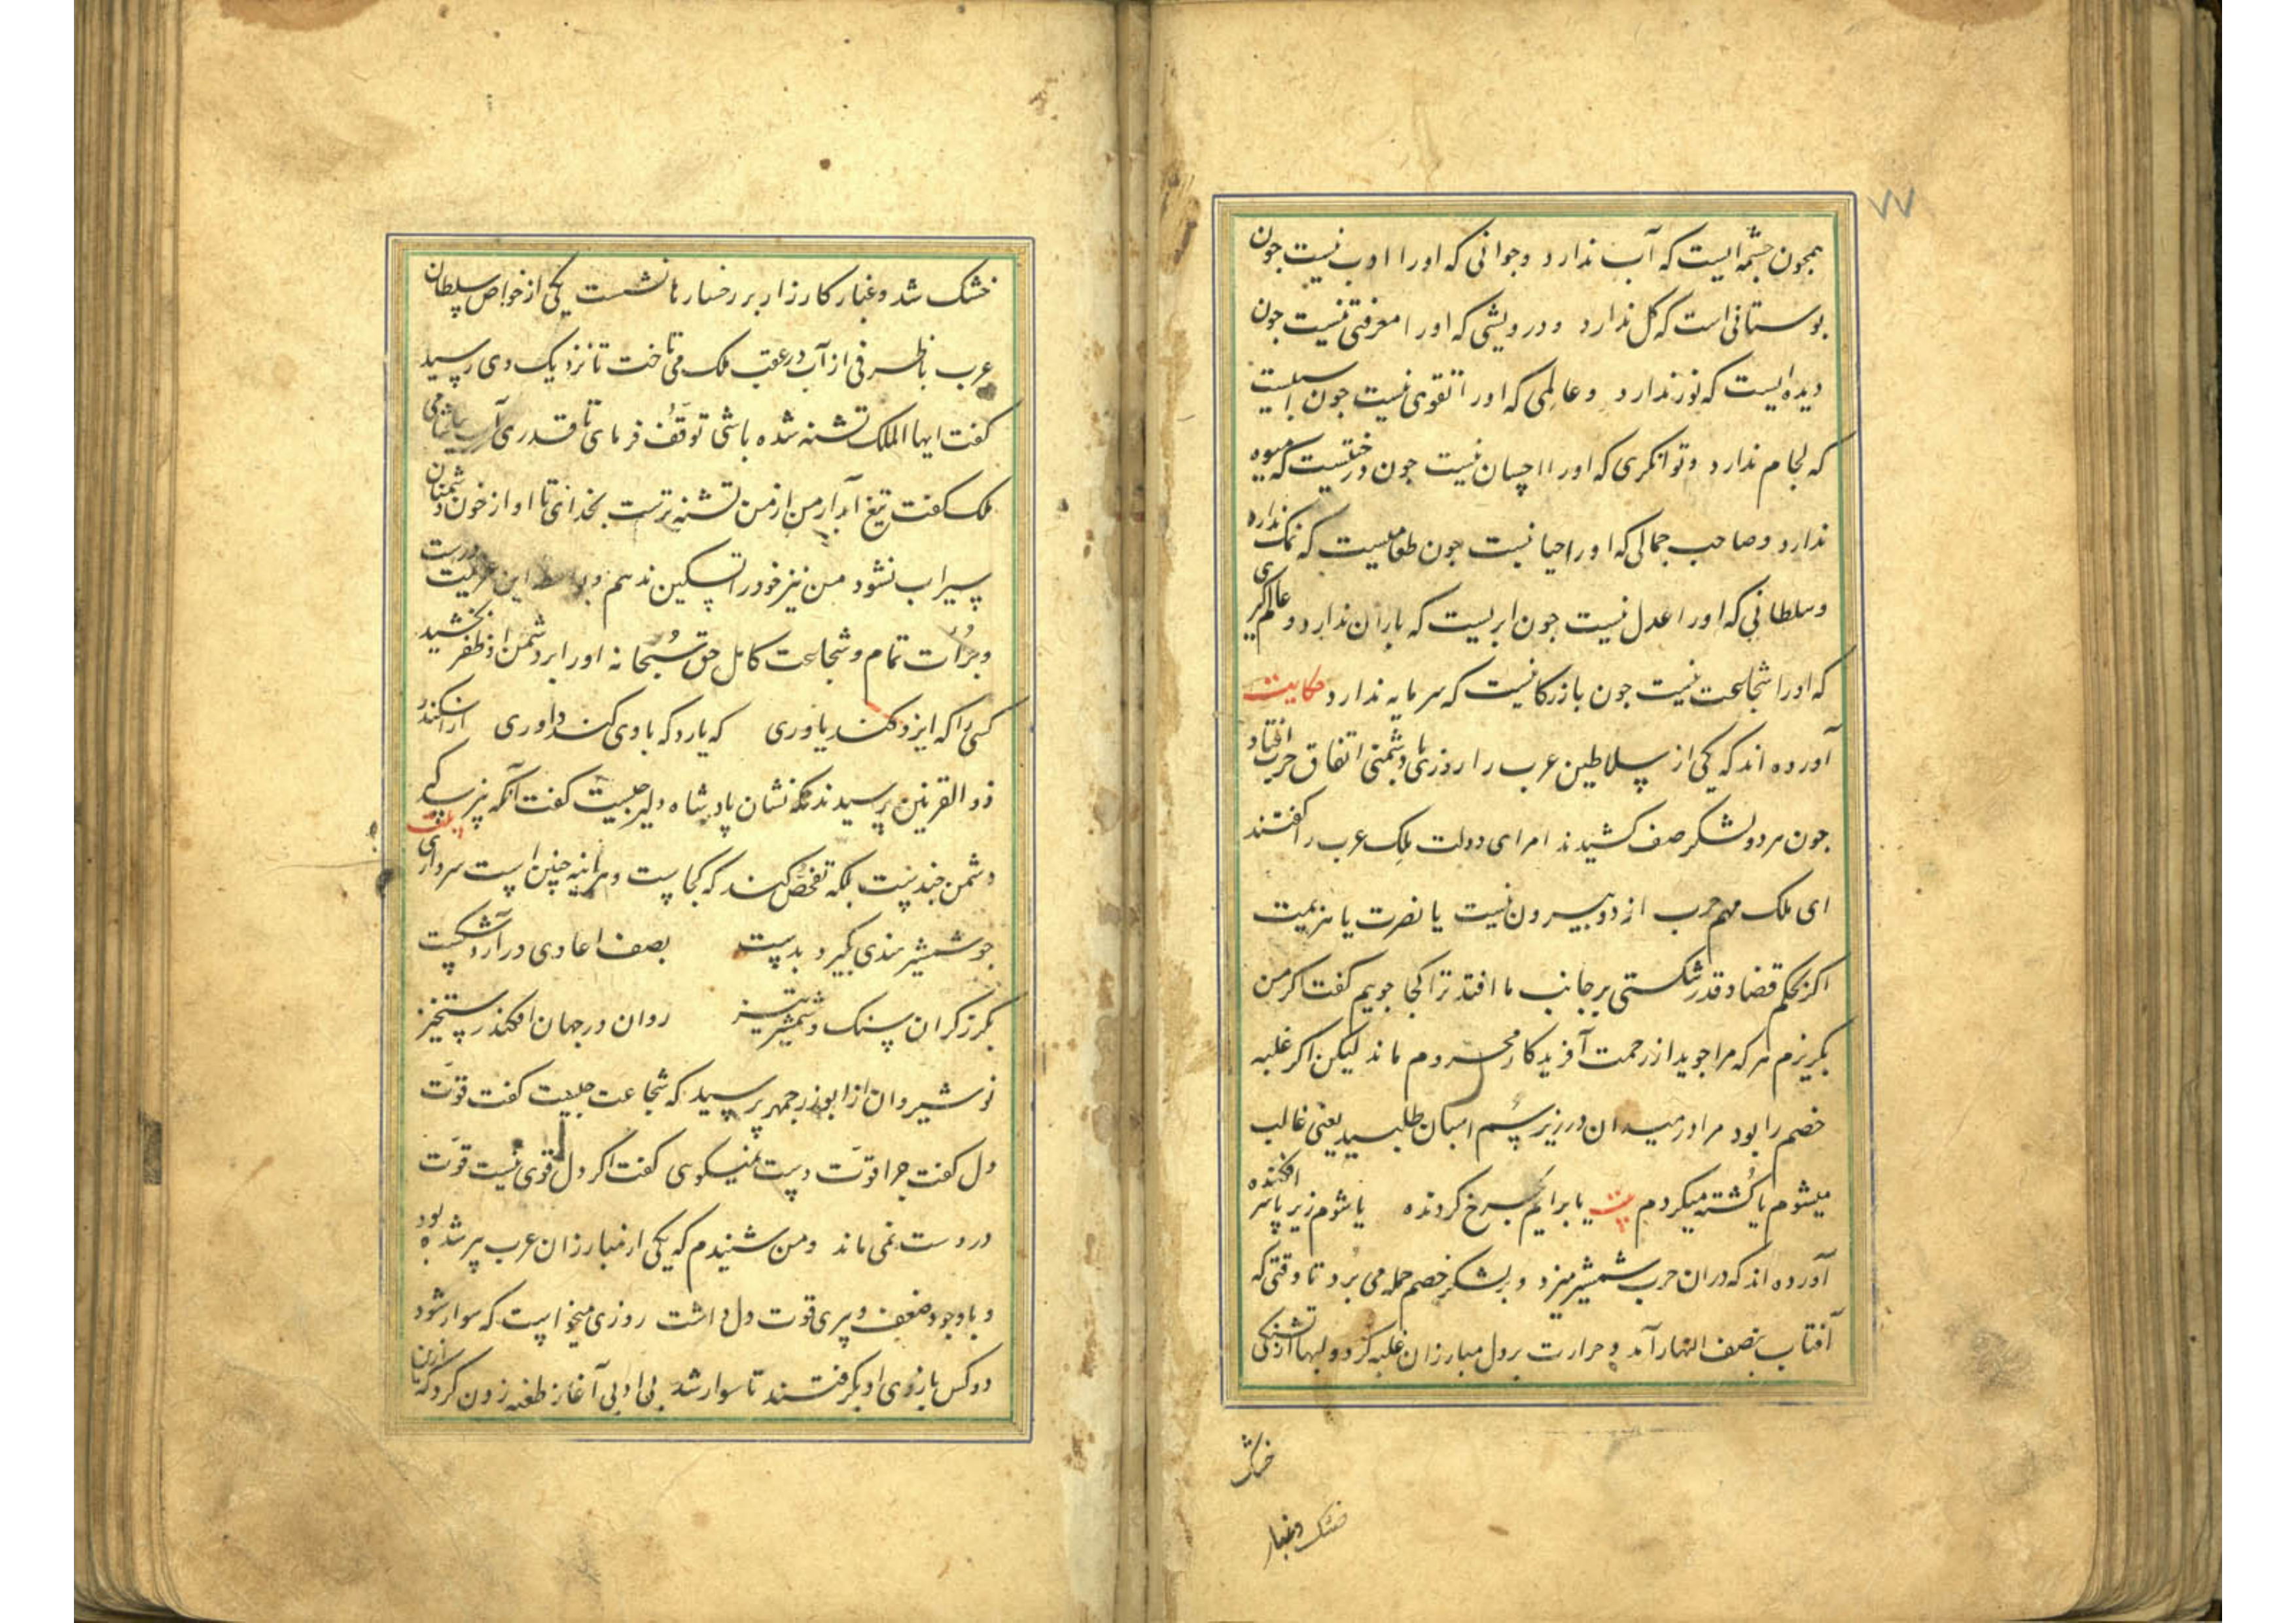 ۷۷
همچون چشمه ایست که آب ندارد و جوانی که او را ادب نیست چون
بوستانی است که کل ندارد و درویشی که او را معرفتی نیست چون
دیده ایست که نور ندارد و عالمی که او را تقوی نیست چون اسبیست
که لجام ندارد و توانکری که او را احسان نیست چون درختیست که میوه
ندارد و صاحب جمالی که او را حیا نیست چون طعامیست که نمک ندارد
و سلطانی که او را عدل نیست چون ابریست که باران ندارد و عالم کیری
که او را شجاعت نیست چون بازرکانیست که سرمایه ندارد حکایت
آورده اند که یکی از سلاطین عرب را روزی با دشمنی اتفاق حرب افتاد
جون هر دو لشکر صف کشیدند امرای دولت ملک عرب را کفتند
ای ملک مهم حرب از دو بیرون نیست یا نصرت یا هزیمت
اکر بحکم قضا و قدر شکستی بر جانب ما افتد ترا کجا جوییم کفت اکر من
بکریزم هر که مرا جوید از رحمت آفریدکار محروم ماند لیکن اکر غلبه
خصم را بود مرا در میدان در زیر سم اسبان طلبید یعنی غالب
میشوم یا کشته میکردم بیت یا برایم بسرخ کردنده یا شوم زیر پا سر افکنده
آورده اند که دران حرب شمشیر میزد و بر لشکر خصم حمله می برد تا وقتی که
آفتاب بنصف النهار آمد و حرارت بر دل مبارزان غلبه کرد و لبها از تشنکی
خشک
خشک و غبار
خشک شد و غبار کارزار بر رخسارها نشست یکی از خواص سلطان
عرب با ظرفی از آب در عقب ملک می تاخت تا نزدیک وی رسید
کفت ایها الملک تشنه شده باشی توقف فرمای تا قدری آب بیاشامی
ملک کفت تیغ آبدار من از من تشنه ترست بخدای تا او از خون دشمنان
سیراب نشود من نیز خود را تسکین ندهم و این عزیمت درست
و جرات تمام و شجاعت کامل حق سبحانه او را بر دشمن او ظفر بخشید
کسی را که ایزد کند یاوری که یارد که با وی کند داوری از اسکندر
ذو القرنین پرسیدند که نشان پادشاه دلیر چیست کفت آنکه نپرسد که
دشمن چندست بلکه تفحص کند که کجاست و هرآینه چنین است سرداری بیت
جو شمشیر هندی بکیرد بدست بصف اعادی درآرد شکست
بکرز کران سنک و شمشیر تیز روان در جهان افکند رستخیز
نوشیروان از ابوذرجمهر پرسید که شجاعت چیست کفت قوت
دل کفت چرا قوت دست نمیکویی کفت اکر دل قوی نیست قوت
در دست نمی ماند و من شنیدم که یکی از مبارزان عرب پیر شده بود
و با وجود ضعف و پیری قوت دل داشت روزی میخواست که سوار شود
دو کس بازوی او بکرفتند تا سوار شد بی ادبی آغاز طعنه زدن کرد که ازین